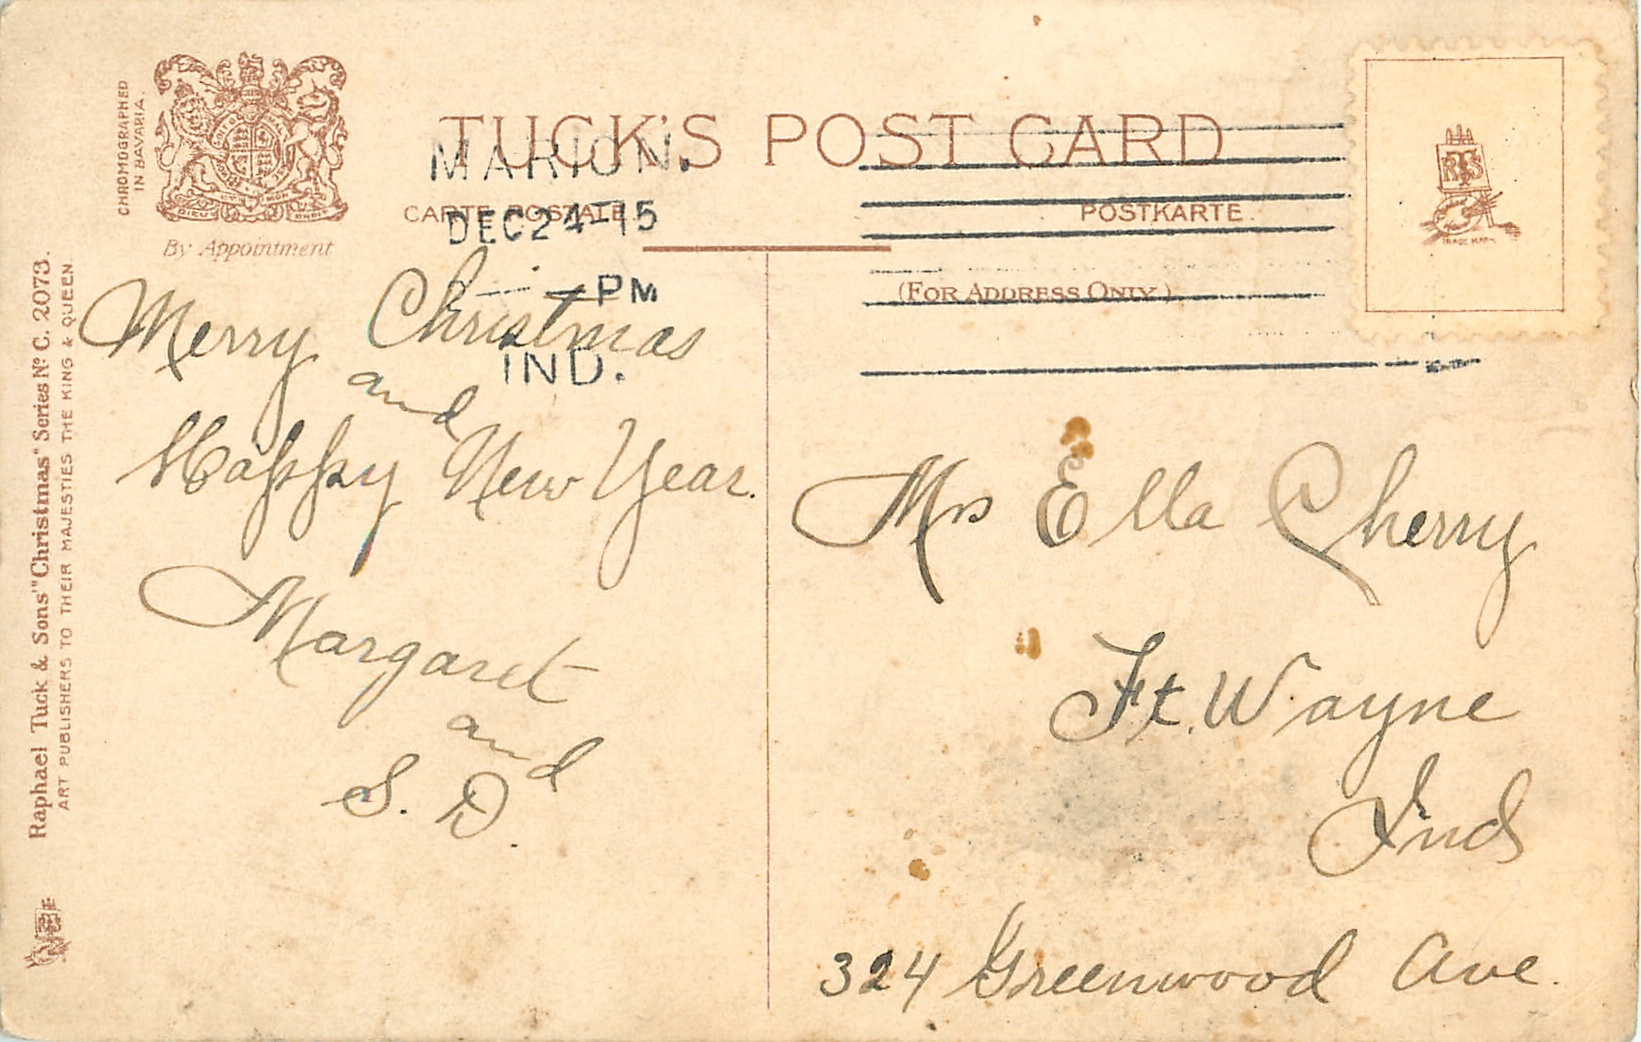 CHROMOGRAPHED
IN BAVARIA.
DIEU ET MON DROIT
By Appointment
TUCK'S POST CARD
CARTE POSTALE.
POSTKARTE.
(FOR ADDRESS ONLY.)
MARION.
DEC 24-15
PM
IND.
TRADE MARK
Raphael Tuck & Sons' "Christmas" Series Nº C. 2073.
ART PUBLISHERS TO THEIR MAJESTIES THE KING & QUEEN
Merry Christmas
and
Happy New Year.
Margaret
and
S. D.
Mrs Ella Cherry
Ft. Wayne
Ind
324 Greenwood Ave.